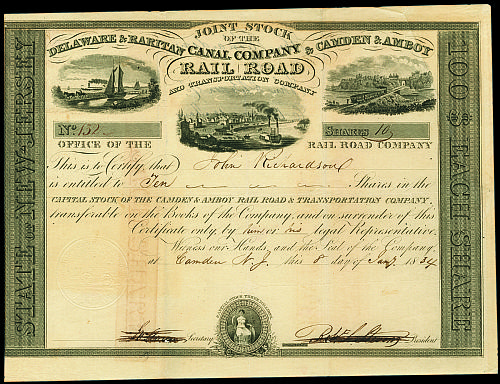 JOINT STOCK
OF THE
DELAWARE & RARITAN CANAL COMPANY & CAMDEN & AMBOY
RAIL ROAD
AND TRANSPORTATION COMPANY
No. 152
SHARES 10
OFFICE OF THE RAIL ROAD COMPANY
This is to Certify that John Richardson
is entitled to Ten Shares in the
CAPITAL STOCK OF THE CAMDEN & AMBOY RAIL ROAD & TRANSPORTATION COMPANY,
transferable on the Books of the Company, and on surrender of this
Certificate only, by him or his legal Representative.
Witness our Hands, and the Seal of the Company,
at Camden N.J. this 8 day of Jany 1834
Secretary
President
STATE OF NEW-JERSEY
100 $ EACH SHARE